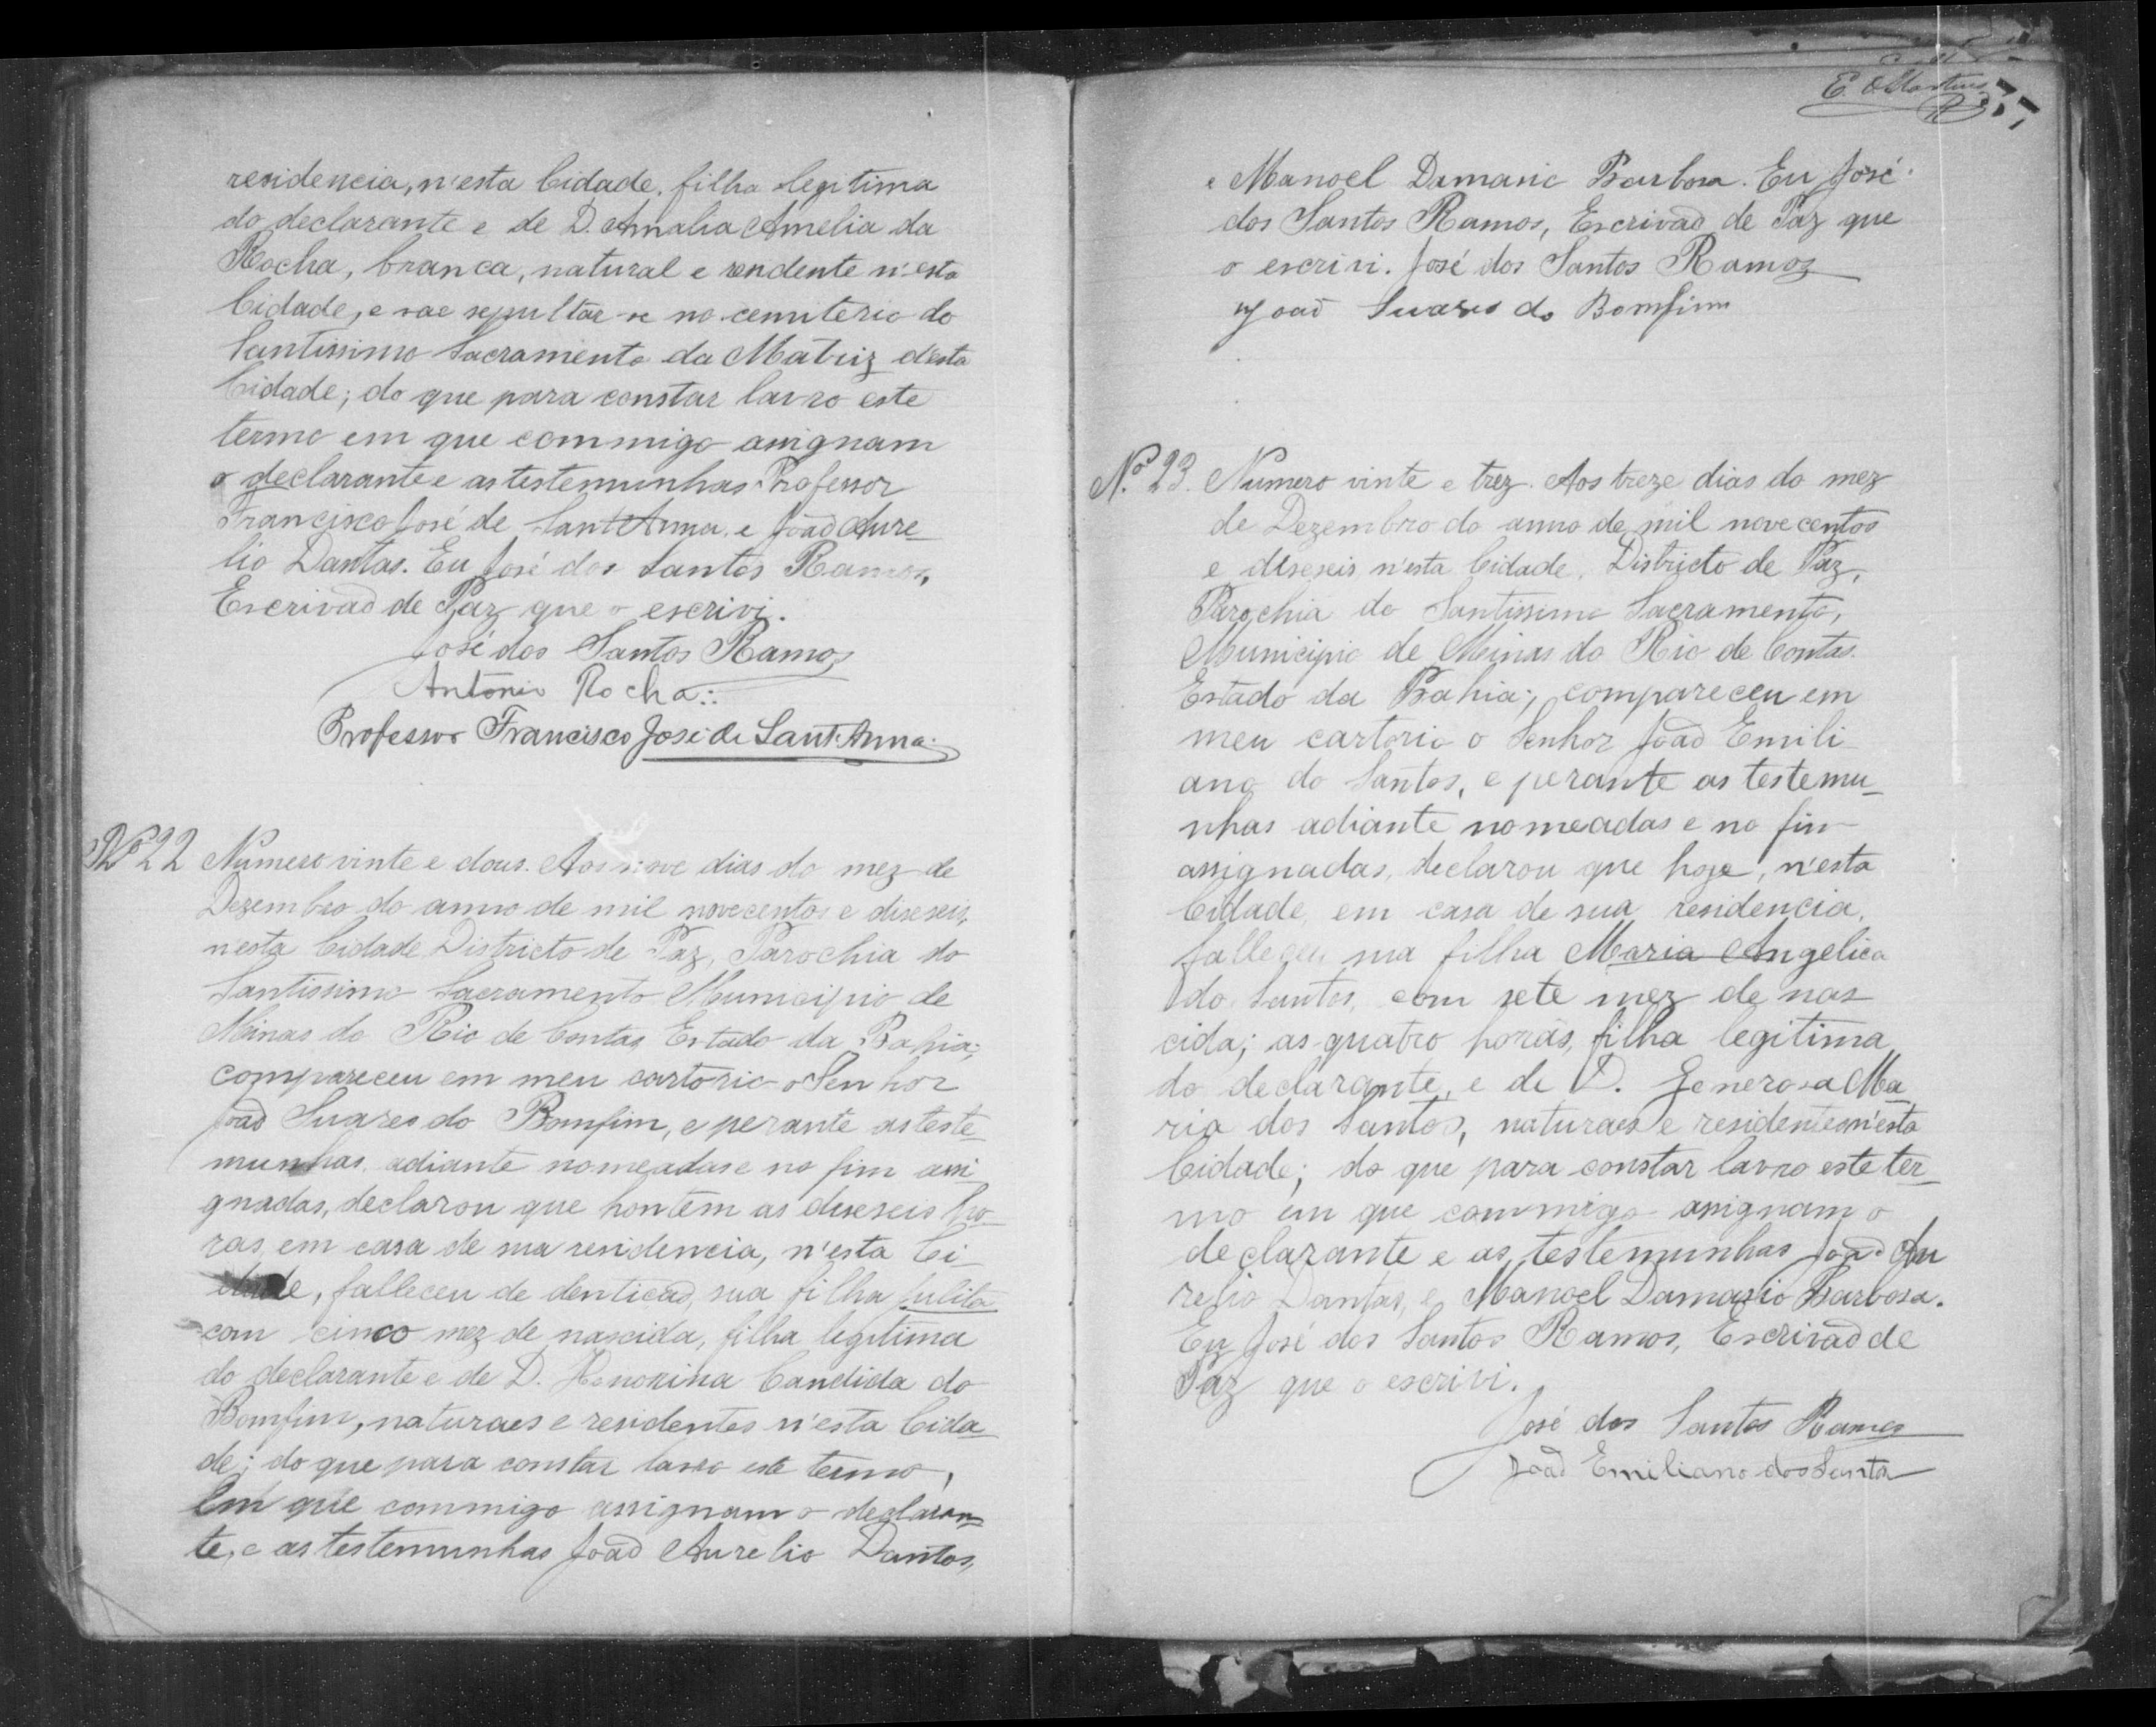 residencia, n'esta Cidade, filha legitima
do declarante e de D. Amalia Amelia da
Rocha, branca, natural e residente n'esta
Cidade, e vae sepultar-se no cemiterio do
Santissimo Sacramento da Matriz d'esta
Cidade; do que para constar lavro este
termo em que commigo assignam
o declarante e as testemunhas Professor
Francisco José de Sant'Anna e João Aure-
lio Dantas. Eu José dos Santos Ramos,
Escrivaõ de Paz que o escrivi.
José dos Santos Ramos
Antonio Rocha:.
Professor Francisco José de Sant'Anna.
Nº 22 Numero vinte e dous. Aos nove dias do mez de
Dezembro do anno de mil novecentos e diseseis,
nesta Cidade Districto de Paz, Parochia do
Santissimo Sacramento Municipio de
Minas do Rio de Contas Estado da Bahia;
compareceu em meu cartorio o Senhor
Joaõ Suares do Bomfim, e perante as teste-
munhas adiante nomeadas e no fim assi-
gnadas, declarou que hontem as diseseis ho-
ras, em casa de sua residencia, n'esta Ci-
dade, falleceu de denticaõ, sua filha Julita
com cinco mez de nascida, filha legitima
do declarante e de D. Honorina Candida do
Bomfim, naturaes e residentes n'esta Cida-
de; do que para constar lavro este termo,
em que commigo assignam o declaran-
te, e as testemunhas Joaõ Aurelio Dantas,
E. Martins
37
e Manoel Damasio Barbosa. Eu José
dos Santos Ramos, Escrivaõ de Paz que
o escrivi. José dos Santos Ramos
Joaõ Suares do Bomfim
Nº 23. Numero vinte e trez. Aos treze dias do mez
de Dezembro do anno de mil novecentos
e diseseis n'esta Cidade, Districto de Paz,
Parochia do Santissimo Sacramento,
Municipio de Minas do Rio de Contas.
Estado da Bahia; compareceu em
meu cartorio o Senhor Joaõ Emili-
ano do Santos, e perante as testemu-
nhas adiante nomeadas e no fim
assignadas, declarou que hoje, n'esta
Cidade, em casa de sua residencia,
falleceu sua filha Maria Angelica
do Santos, com sete mez de nas-
cida; as quatro horas, filha legitima
do declarante, e de D. Generosa Ma-
ria dos Santos, naturaes e residentes n'esta
Cidade; do que para constar lavro este ter-
mo em que commigo assignam o
declarante e as testemunhas Joaõ Au-
relio Dantas, e Manoel Damasio Barbosa.
Eu José dos Santos Ramos, Escrivaõ de
Paz que o escrivi.
José dos Santos Ramos
Joaõ Emiliano dos Santos